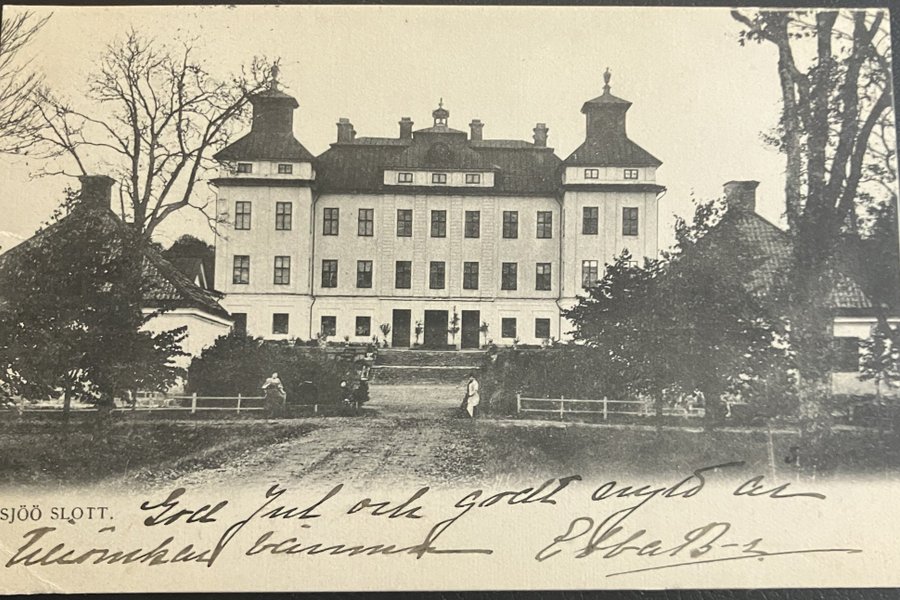 SJÖÖ SLOTT.
God Jul och godt nytt år
tillönskar Ebba B-r